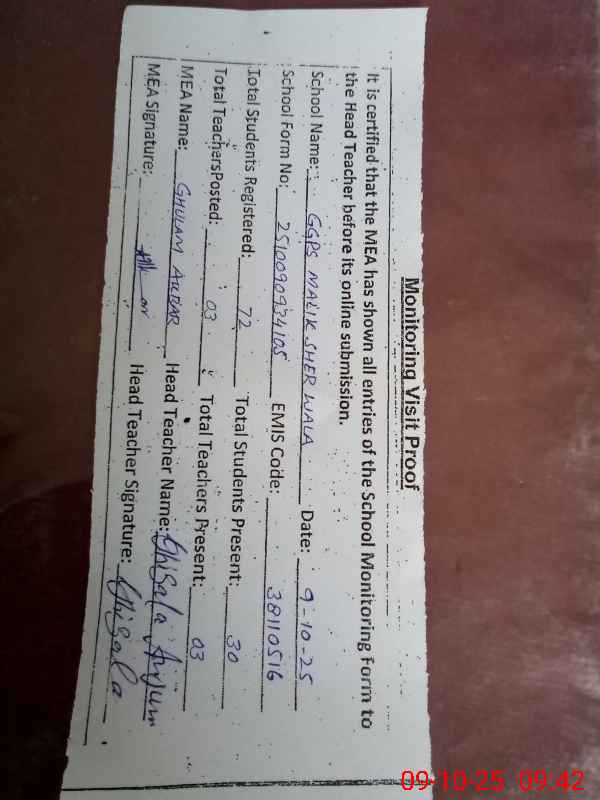 Monitoring Visit Proof
It is certified that the MEA has shown all entries of the School Monitoring Form to
the Head Teacher before its online submission.
School Name: GGPS MALIK SHER WALA Date: 9-10-25
School Form No: 2510090934105 EMIS Code: 38110516
Total Students Registered: 72 Total Students Present: 30
Total Teachers Posted: 03 Total Teachers Present: 03
MEA Name: GHULAM Head Teacher Name: Ghizala Anjum
MEA Signature: Head Teacher Signature: Ghizala
09-10-25 09:42